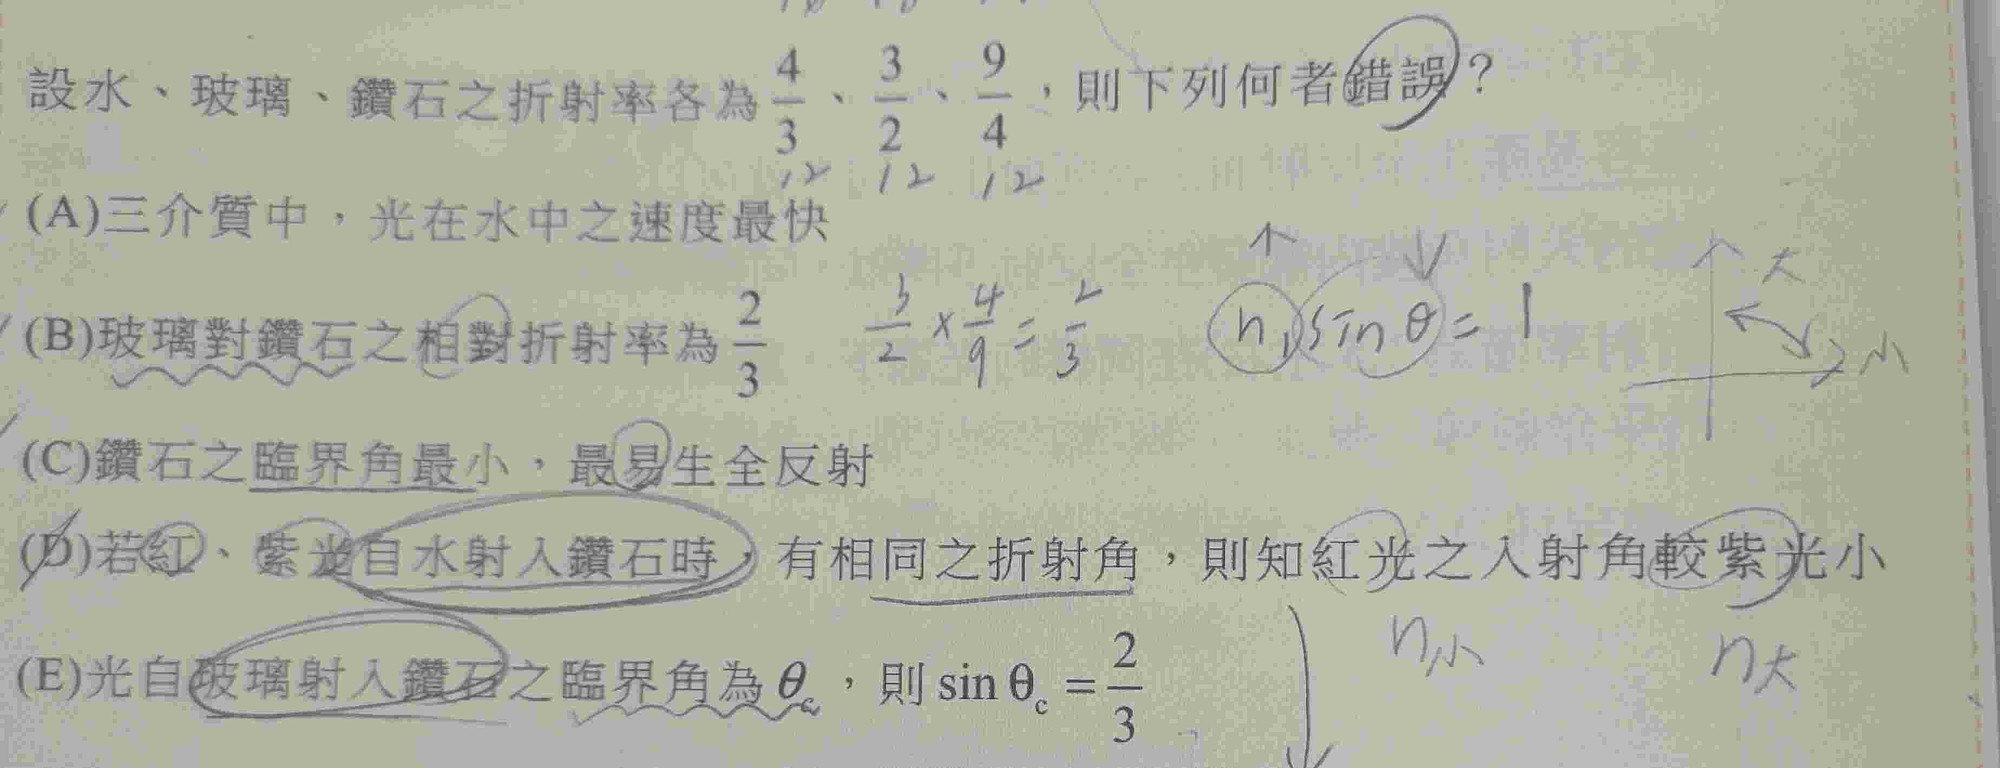 設水、玻璃、鑽石之折射率各為 4/3、3/2、9/4,則下列何者錯誤?
12 12 12
(A)三介質中,光在水中之速度最快
(B)玻璃對鑽石之相對折射率為 2/3
3/2 × 4/9 = 2/3
n₁ sin θ = 1
大
小
(C)鑽石之臨界角最小,最易生全反射
(D)若紅、紫光自水射入鑽石時,有相同之折射角,則知紅光之入射角較紫光小
n小 n大
(E)光自玻璃射入鑽石之臨界角為 θc,則 sin θc = 2/3